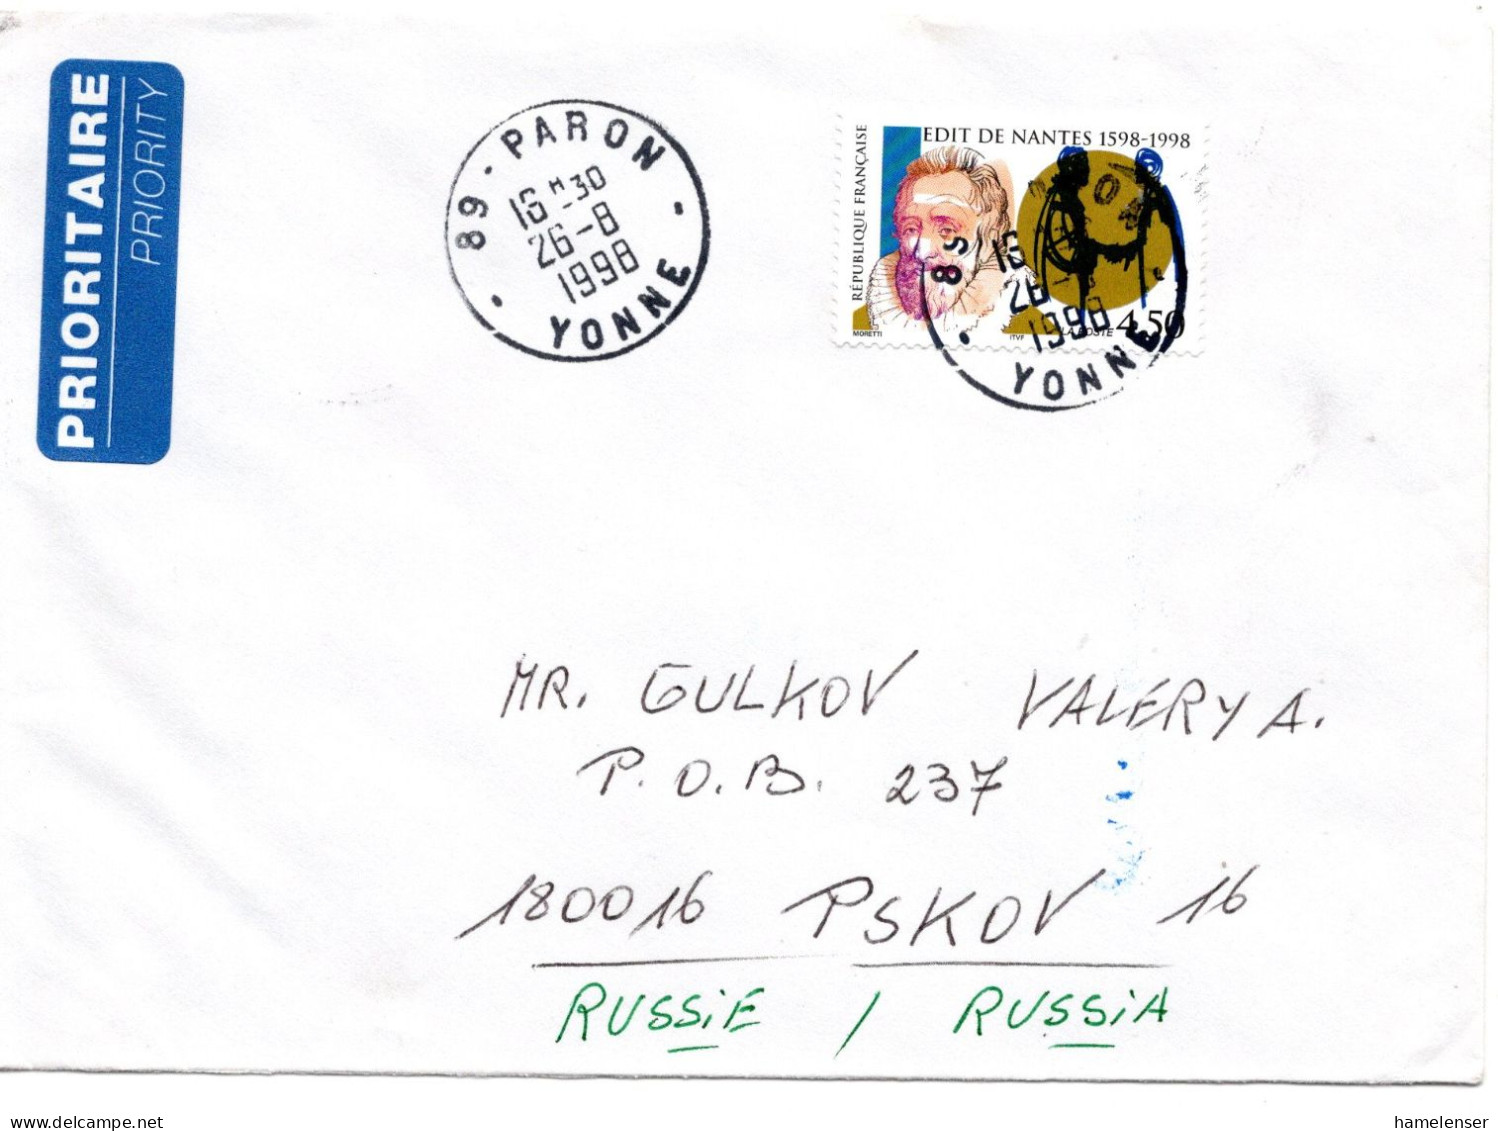 PRIORITAIRE
PRIORITY
89 - PARON
16 H 30
26 - 8
1998
YONNE
EDIT DE NANTES 1598-1998
RÉPUBLIQUE FRANÇAISE
MORETTI
ITVF
LA POSTE 4,50
26
1998
YONNE
MR. GULKOV VALERY A.
P.O.B. 237
180016 PSKOV 16
RUSSiE / RUSSiA
hamelenser